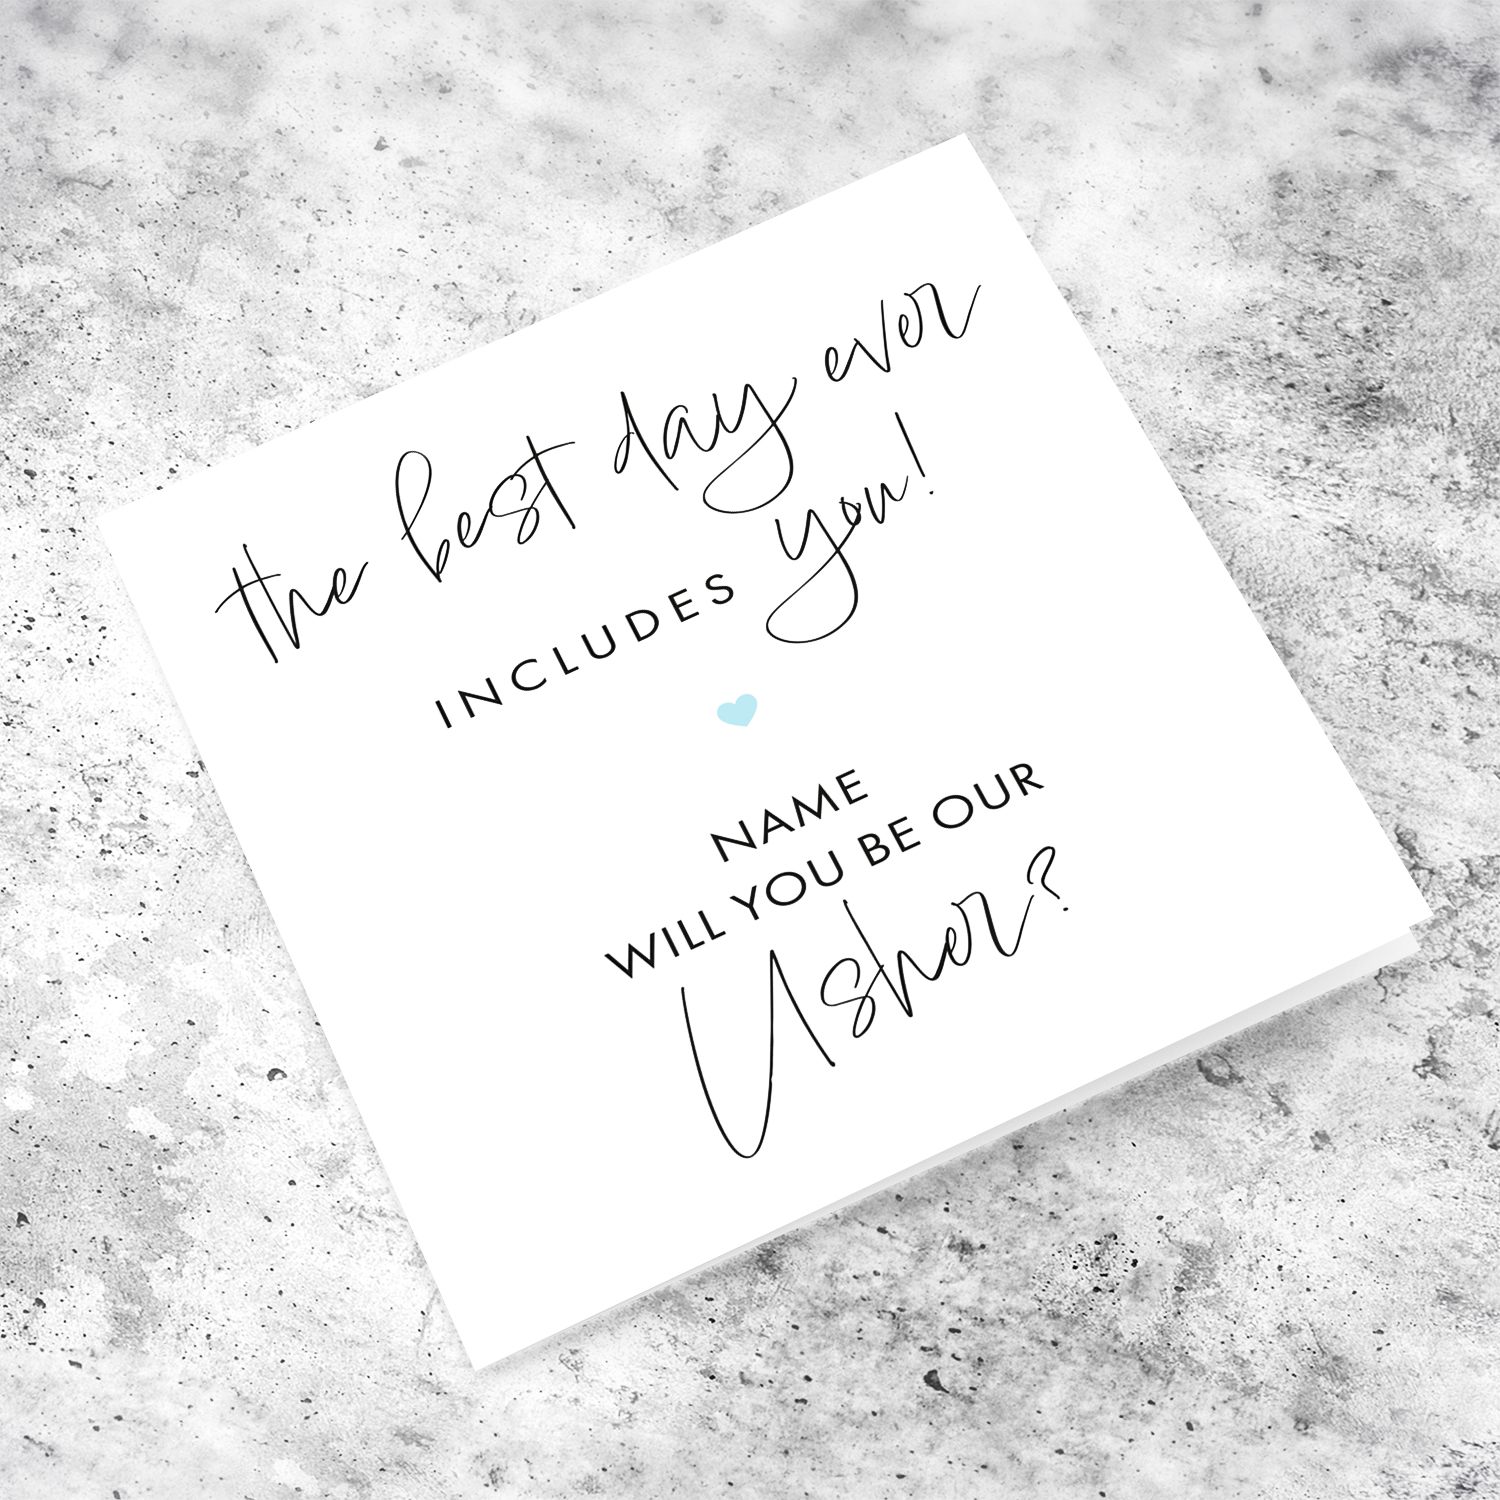 the best day ever
INCLUDES you!
NAME
WILL YOU BE OUR
Usher?